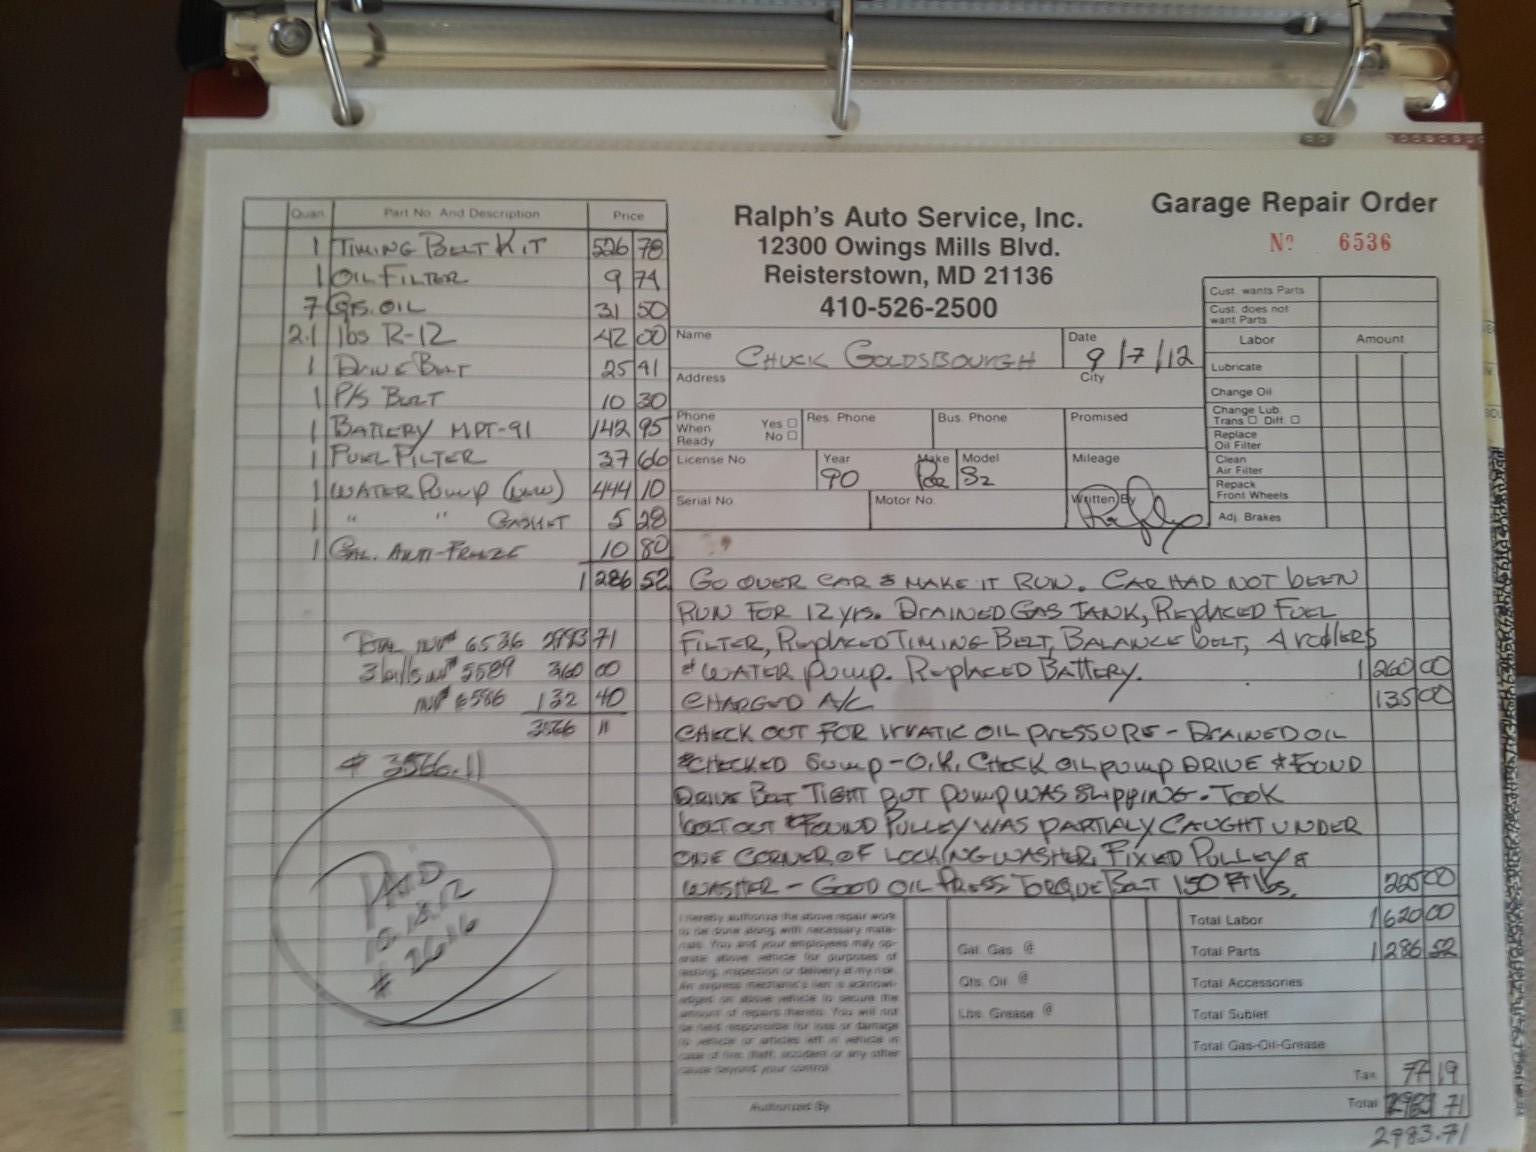 Garage Repair Order
Nº 6536
Ralph's Auto Service, Inc.
12300 Owings Mills Blvd.
Reisterstown, MD 21136
410-526-2500
Quan. Part No. And Description Price
1 TIMING BELT KIT 526 78
1 OIL FILTER 9 74
7 QTS. OIL 31 50
2.1 lbs R-12 42 00
1 DRIVE BELT 25 41
1 P/S BELT 10 30
1 BATTERY MPT-91 142 95
1 FUEL FILTER 37 66
1 WATER PUMP (NEW) 444 10
1 " " GASKET 5 28
1 GAL. ANTI-FREEZE 10 80
1286 52
TOTAL INV# 6536 2983 71
3 bills inv# 5589 360 00
INV# 6586 132 40
3566 11
$ 3566.11
PAID
10.18.12
# 2616
Cust. wants Parts
Cust. does not want Parts
Labor Amount
Lubricate
Change Oil
Change Lub. Trans □ Diff. □
Replace Oil Filter
Clean Air Filter
Repack Front Wheels
Adj. Brakes
Name CHUCK GOLDSBOURGH Date 9/7/12
Address City
Phone When Ready Yes □ No □ Res. Phone Bus. Phone Promised
License No. Year 90 Make Model S2 Mileage
Serial No. Motor No. Written By
GO OVER CAR & MAKE IT RUN. CAR HAD NOT BEEN
RUN FOR 12 yrs. DRAINED GAS TANK, REPLACED FUEL
FILTER, REPLACED TIMING BELT, BALANCE BELT, 4 rollers
& WATER PUMP. REPLACED BATTERY. 1260 00
CHARGED A/C 135 00
CHECK OUT FOR IRRATIC OIL PRESSURE - DRAINED OIL
& CHECKED SUMP - O.K. CHECK OIL PUMP DRIVE & FOUND
DRIVE BELT TIGHT BUT PUMP WAS SLIPPING. TOOK
BOLT OUT & FOUND PULLEY WAS PARTIALY CAUGHT UNDER
ONE CORNER OF LOCKING WASHER. FIXED PULLEY &
WASHER - GOOD OIL PRESS TORQUE BELT 150 FT lbs. 225 00
I hereby authorize the above repair work
to be done along with necessary mate-
rials. You and your employees may op-
erate above vehicle for purposes of
testing, inspection or delivery at my risk.
An express mechanic's lien is acknowl-
edged on above vehicle to secure the
amount of repairs thereto. You will not
be held responsible for loss or damage
to vehicle or articles left in vehicle in
case of fire, theft, accident or any other
cause beyond your control.
Authorized By
Gal. Gas @
Qts. Oil @
Lbs. Grease @
Total Labor 1620 00
Total Parts 1286 52
Total Accessories
Total Sublet
Total Gas-Oil-Grease
Tax 77 19
Total 2983 71
2983.71